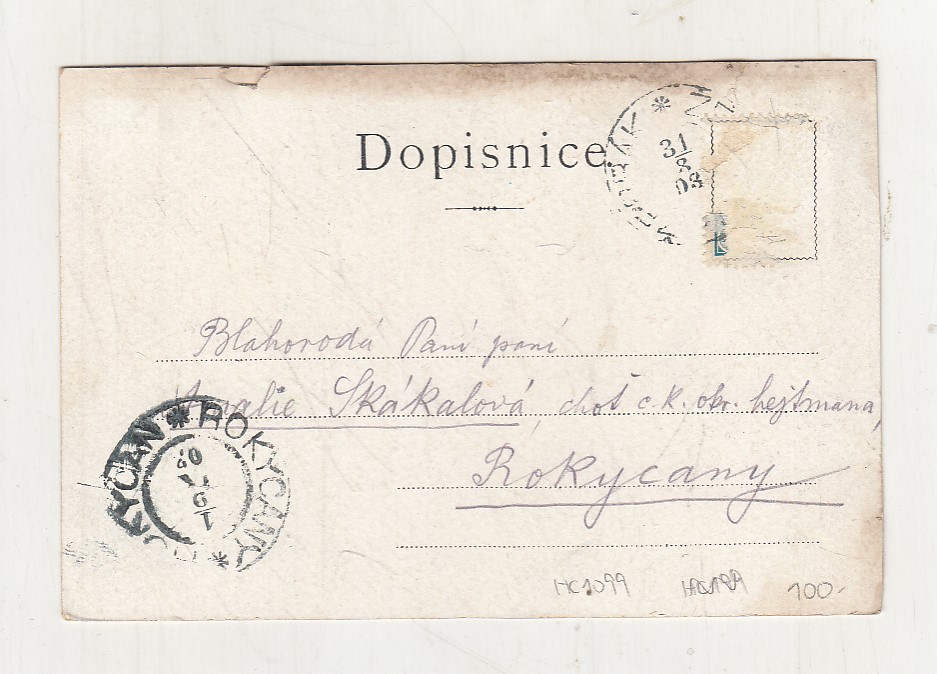 Dopisnice
31
8
03
Blahorodá Paní paní
Amalie Skákalová, choť c. k. okr. hejtmana,
Rokycany
ROKYCANY * ROKYCAN *
1
9
03
HC1099 100.-